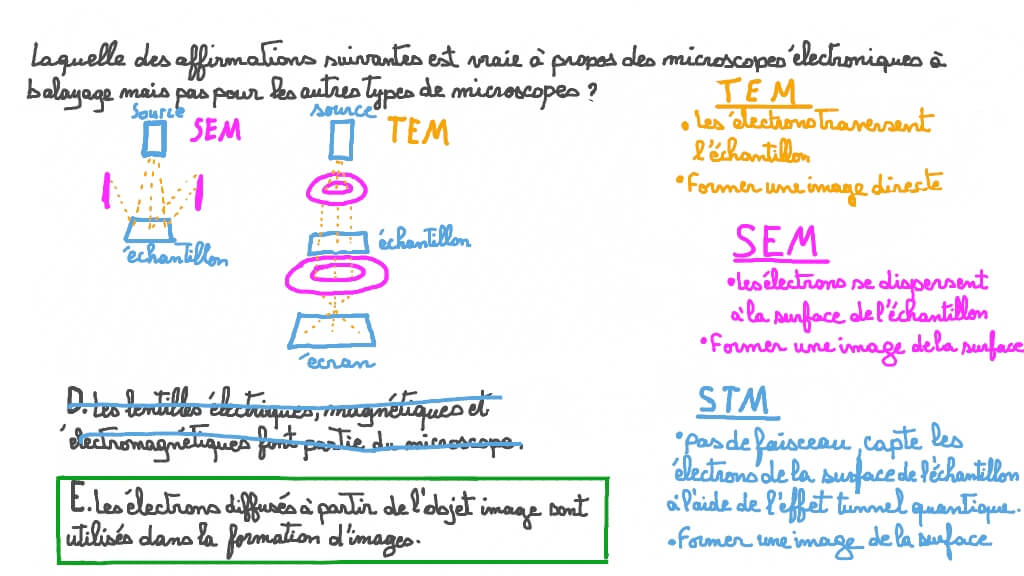 Laquelle des affirmations suivantes est vraie à propos des microscopes électroniques à
balayage mais pas pour les autres types de microscopes ?
source
SEM
échantillon
source
TEM
échantillon
écran
D. Les lentilles électriques, magnétiques et
électromagnétiques font partie du microscope.
E. Les électrons diffusés à partir de l'objet image sont
utilisés dans la formation d'images.
TEM
• Les électrons traversent
l'échantillon
• Former une image directe
SEM
• Les électrons se dispersent
à la surface de l'échantillon
• Former une image de la surface
STM
• pas de faisceau, capte les
électrons de la surface de l'échantillon
à l'aide de l'effet tunnel quantique.
• Former une image de la surface